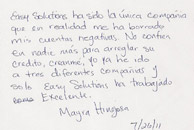 Easy Solutions ha sido la única compañia
que en realidad me ha borrado
mis cuentas negativas. No confien
en nadie más para arreglar su
credito, creanme, yo ya he ido
a tres diferentes compañias y
solo Easy Solutions ha trabajado
Excelente.
Mayra Hinojosa
7/20/11